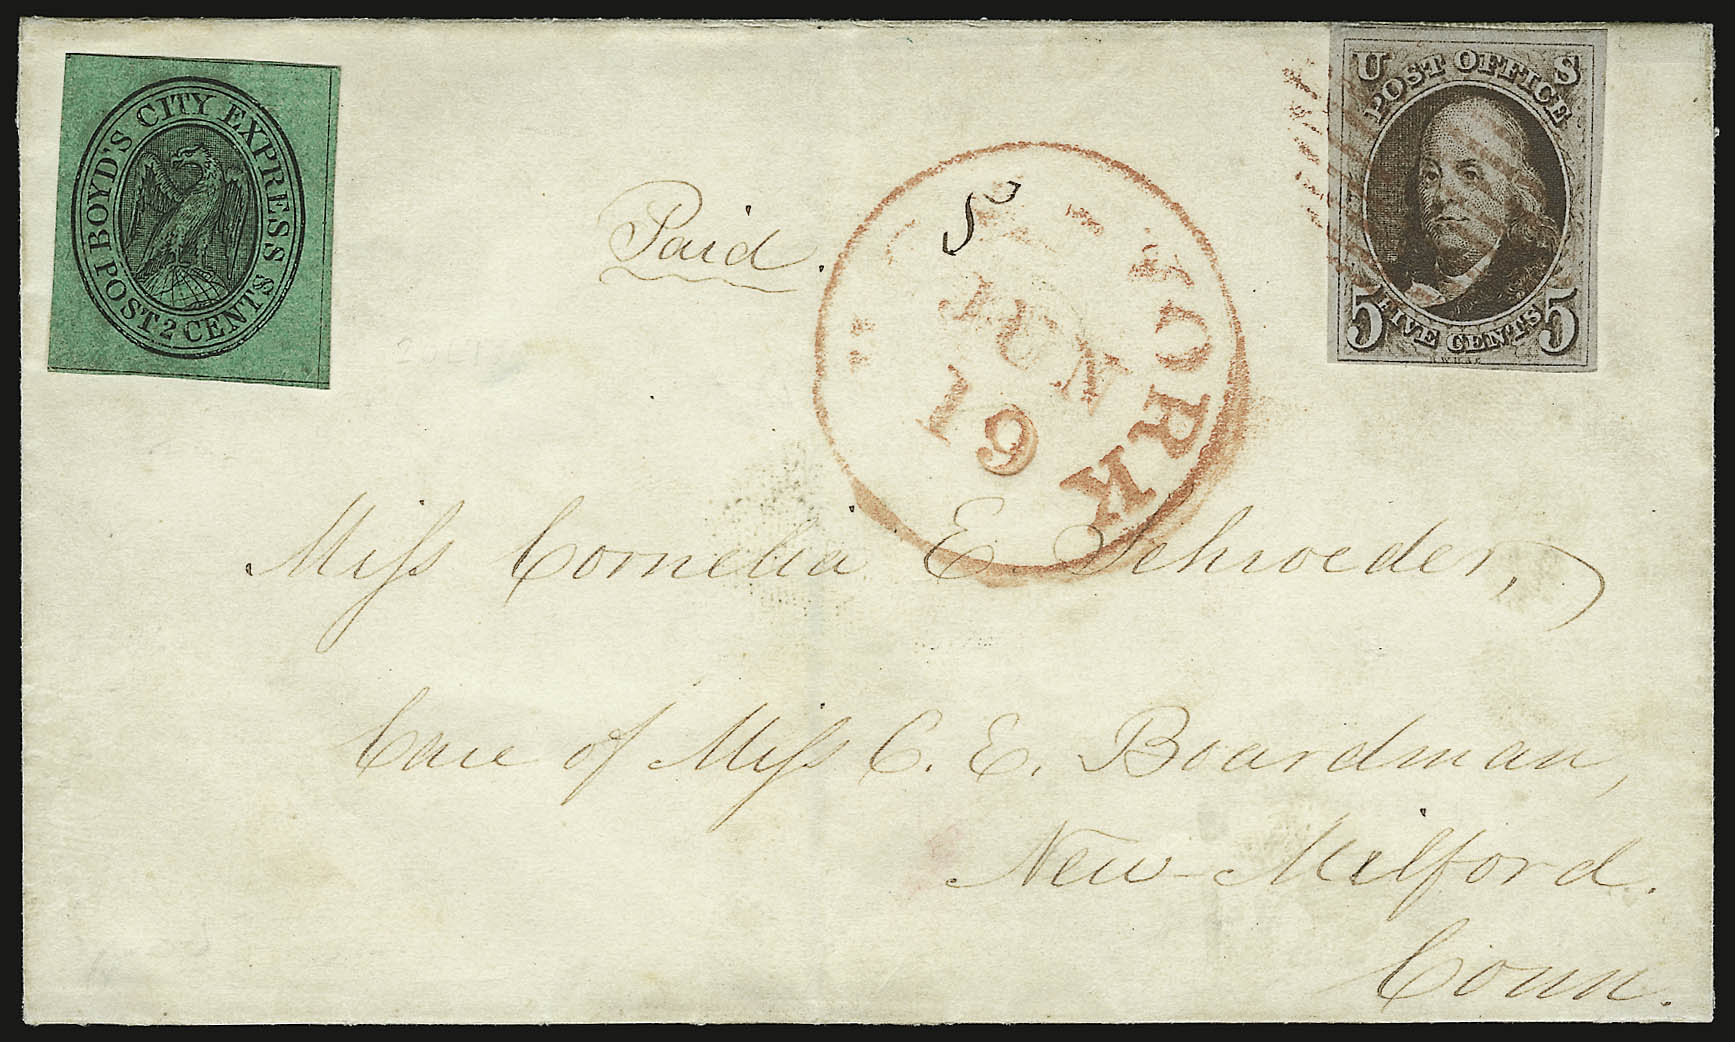 BOYD'S CITY EXPRESS
POST 2 CENTS
U S
POST OFFICE
5 FIVE CENTS 5
Paid.
YORK
JUN
19
Miss Cornelia E. Schroeder,
Care of Miss C. E. Boardman,
New-Milford.
Conn.